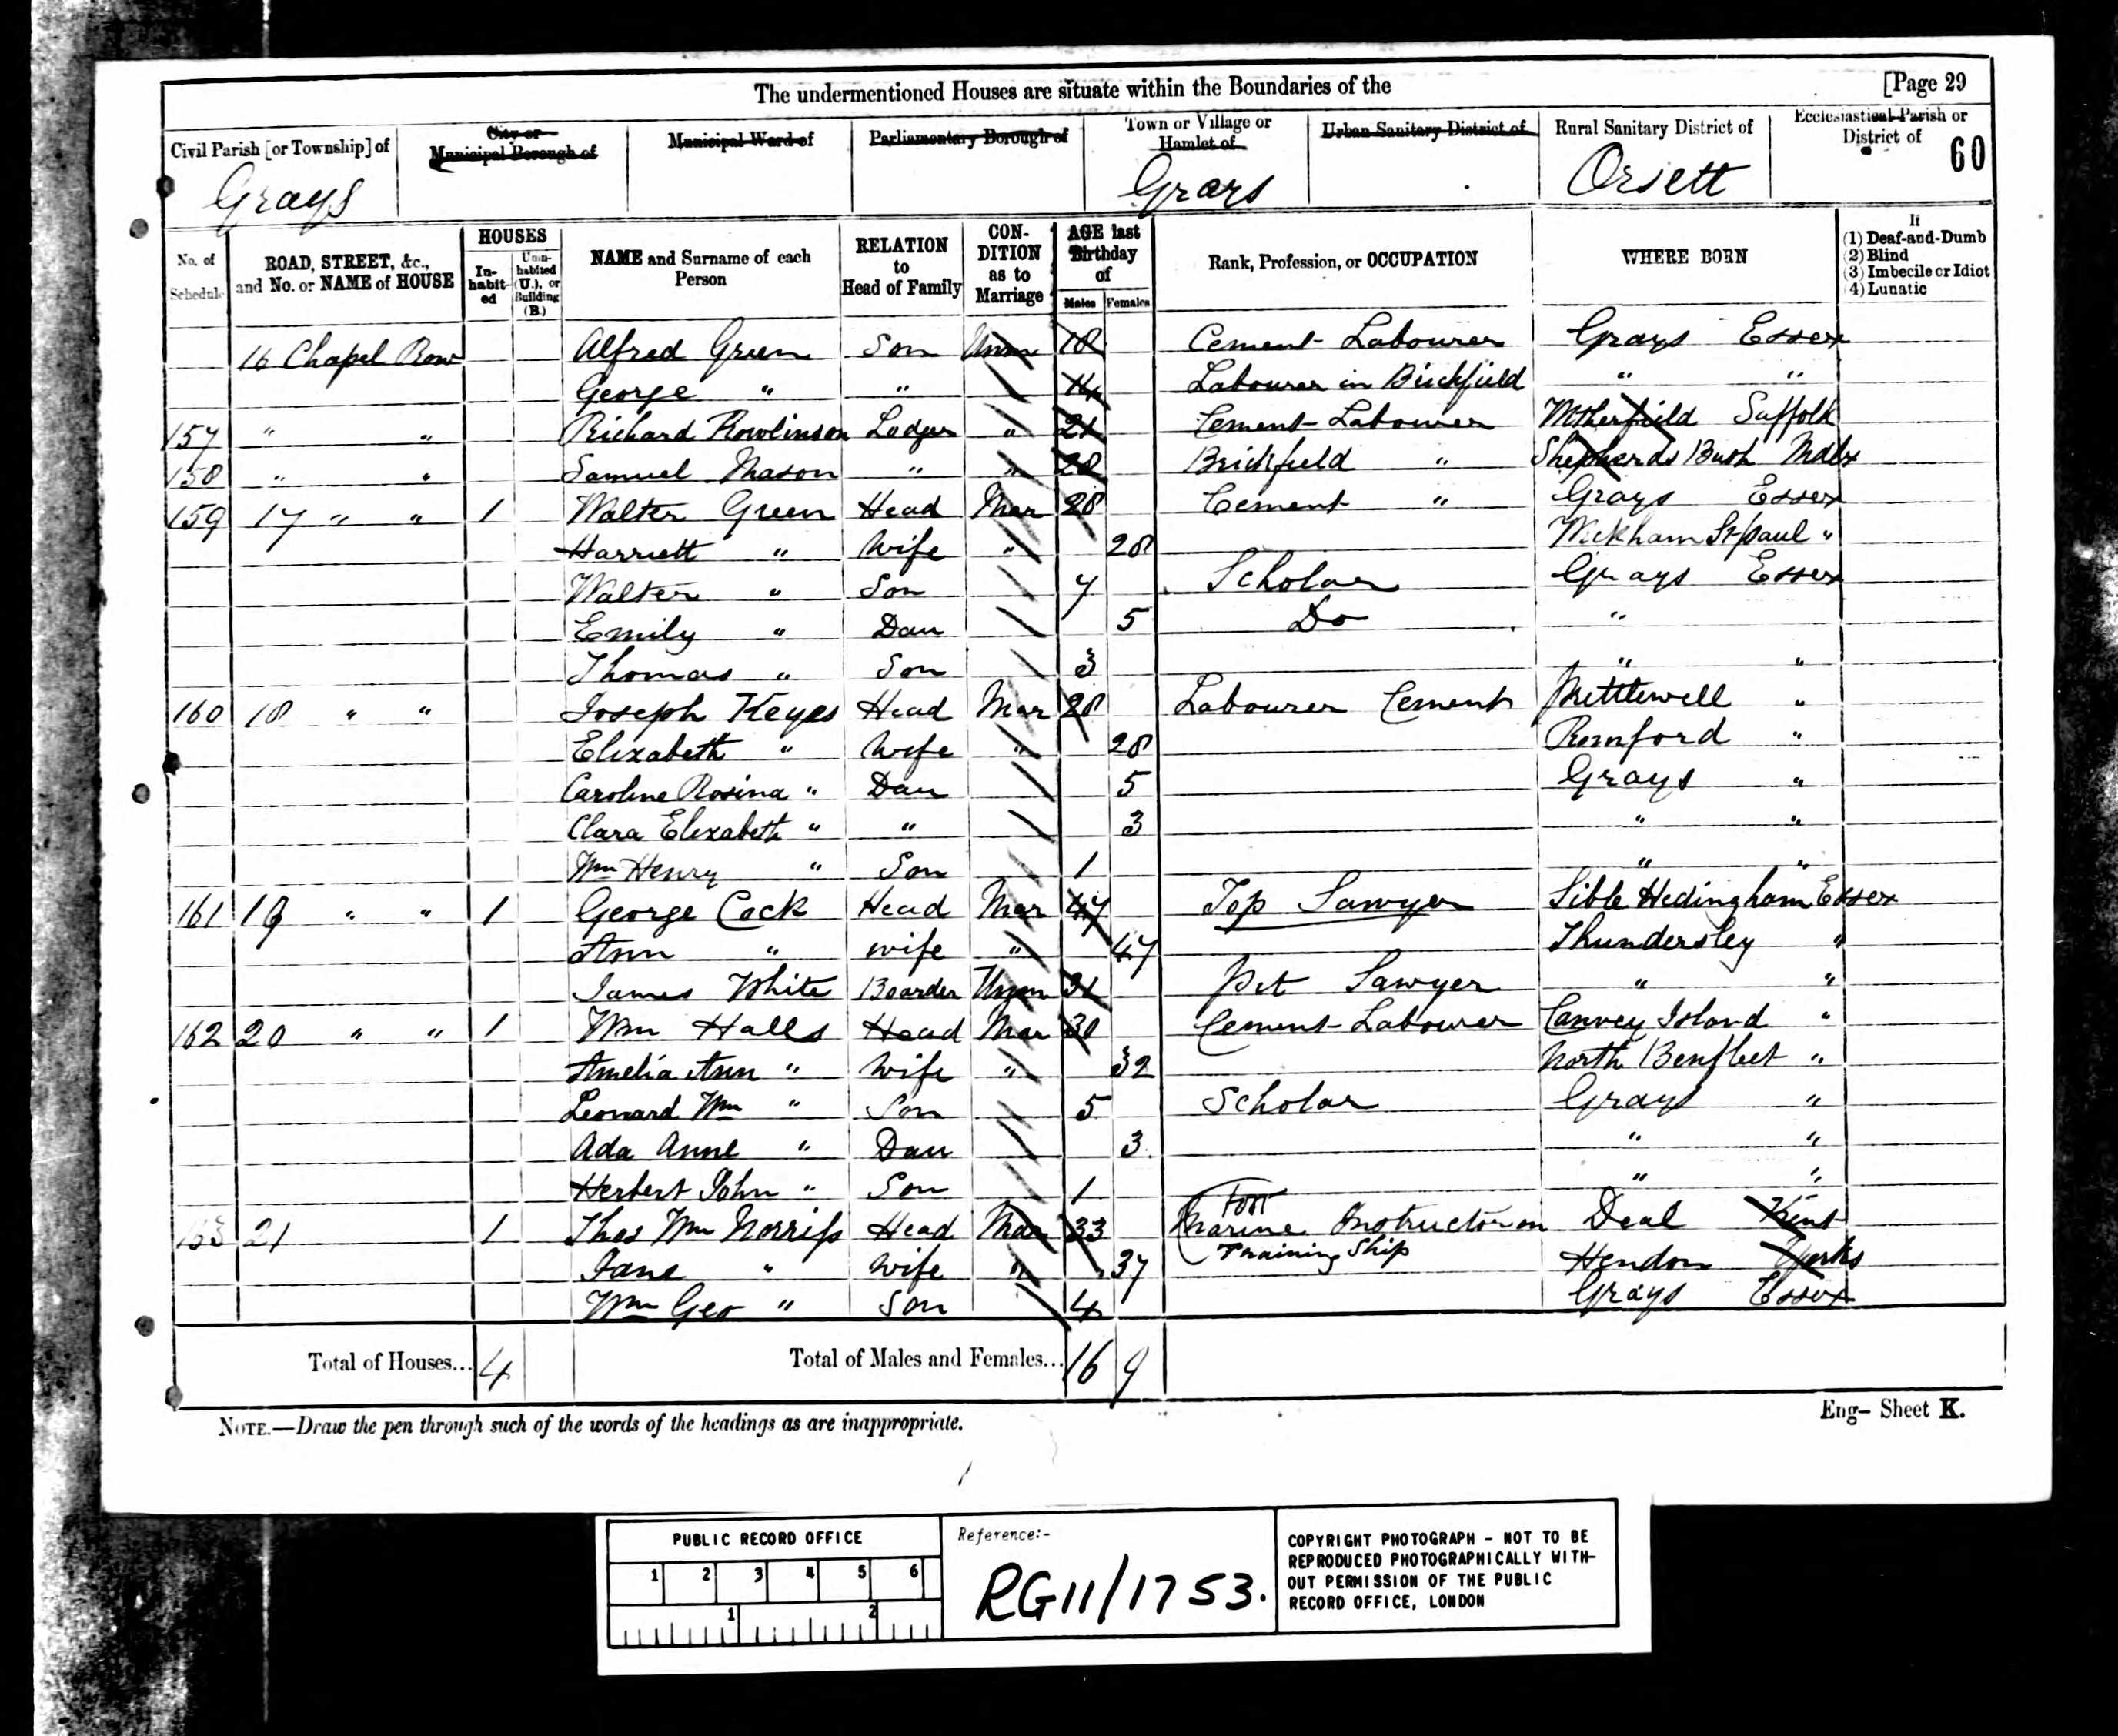 The undermentioned Houses are situate within the Boundaries of the [Page 29
Civil Parish [or Township] of City or Municipal Borough of Municipal Ward of Parliamentary Borough of Town or Village or Hamlet of Urban Sanitary District of Rural Sanitary District of Ecclesiastical Parish or District of 60
Grays Grays Orsett
No. of Schedule ROAD, STREET, &c., and No. or NAME of HOUSE HOUSES Inhabited Uninhabited (U.), or Building (B.) NAME and Surname of each Person RELATION to Head of Family CONDITION as to Marriage AGE last Birthday of Males Females Rank, Profession, or OCCUPATION WHERE BORN If (1) Deaf-and-Dumb (2) Blind (3) Imbecile or Idiot (4) Lunatic
16 Chapel Row Alfred Green Son Unm 18 Cement Labourer Grays Essex
George " " 14 Labourer in Brickfield " "
157 " " Richard Rowlinson Lodger " 21 Cement Labourer Suffolk
158 " " Samuel Mason " " 28 Brickfield " Shepherds Bush Mdlx
159 17 " " 1 Walter Green Head Mar 28 Cement " Grays Essex
Harriett " Wife " 28 Wickham St Paul "
Walter " Son 7 Scholar Grays Essex
Emily " Dau 5 Do "
Thomas " Son 3 " "
160 18 " " Joseph Keyes Head Mar 28 Labourer Cement Prittlewell "
Elizabeth " Wife " 28 Romford "
Caroline Rosina " Dau 5 Grays "
Clara Elizabeth " " 3 " "
Wm Henry " Son 1 " "
161 19 " " 1 George Cock Head Mar 47 Top Sawyer Sible Hedingham Essex
Ann " wife " 47 Thundersley "
James White Boarder Unm 31 Pit Sawyer " "
162 20 " " 1 Wm Halls Head Mar 30 Cement Labourer Canvey Island "
Amelia Ann " Wife " 32 North Benfleet "
Leonard Wm " Son 5 Scholar Grays "
Ada Anne " Dau 3 " "
Herbert John " Son 1 " "
163 21 1 Thos Wm Norriss Head Mar 33 Marine Instructor on Training Ship Deal Kent
Jane " Wife " 37 Hendon Yorks
Wm Geo " Son 4 Grays Essex
Total of Houses... 4 Total of Males and Females... 16 9
NOTE.—Draw the pen through such of the words of the headings as are inappropriate. Eng– Sheet K.
PUBLIC RECORD OFFICE
1 2 3 4 5 6
1 2
Reference:-
RG11/1753.
COPYRIGHT PHOTOGRAPH – NOT TO BE
REPRODUCED PHOTOGRAPHICALLY WITH-
OUT PERMISSION OF THE PUBLIC
RECORD OFFICE, LONDON